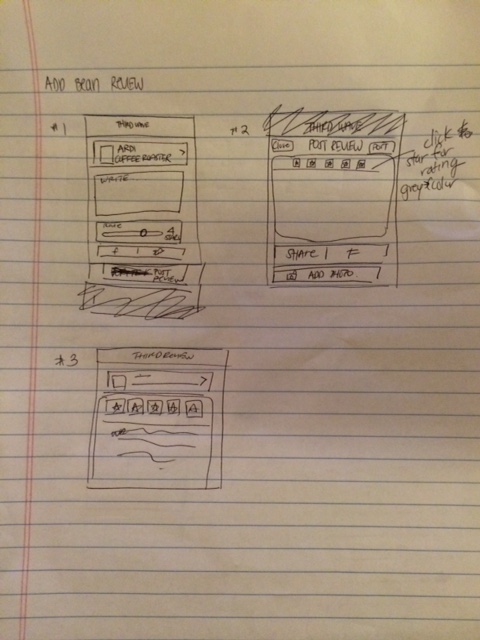 ADD BEAN REVIEW
*1
THIRD WAVE
ARDI
COFFEE ROASTER
WRITE
RATE
f
POST
REVIEW
*2
THIRD WAVE
Close POST REVIEW POST
click
star for
rating
grey+color
SHARE | F
ADD PHOTO
*3
THIRD REVIEW